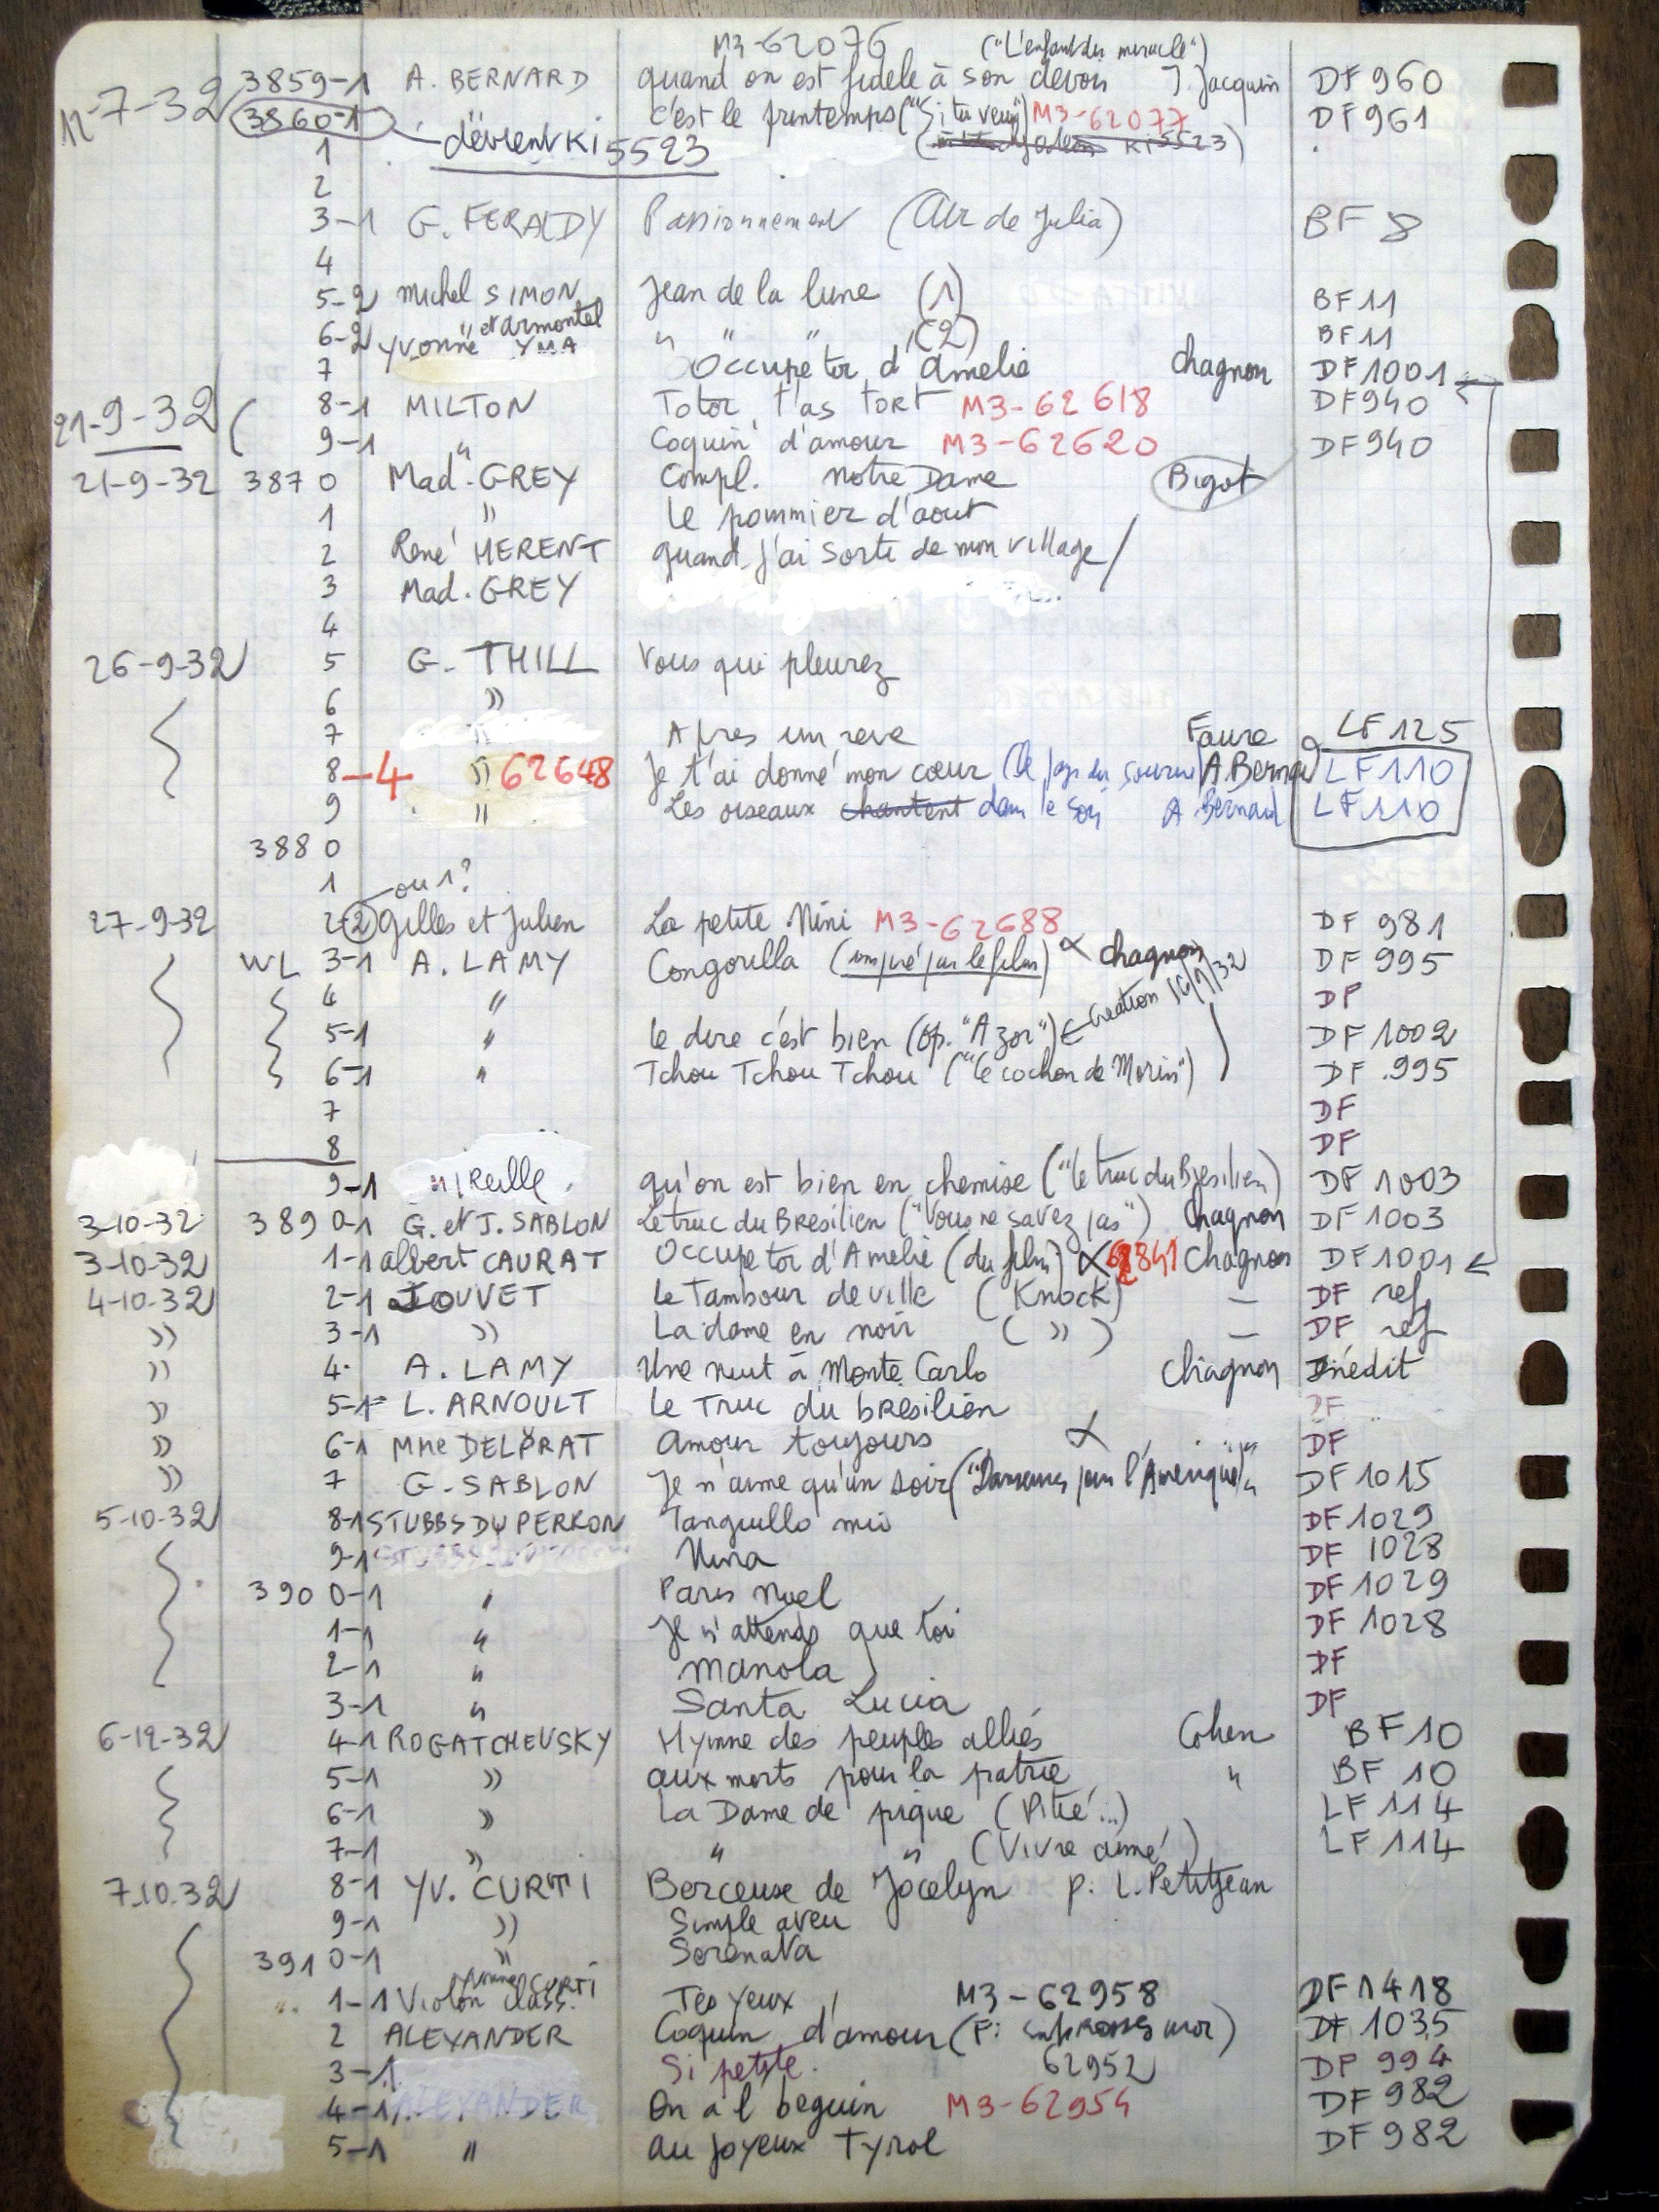 M3-62076 ("L'enfant du miracle")
12-7-32 3859-1 A. BERNARD quand on est fidele à son devoir J. Jacquin DF 960
3860-1 c'est le printemps ("Si tu veux") M3-62077 DF 961
1 devient Ki 5523 Ki 5523)
2
3-1 G. FERALDY Passionnement (Air de Julia) BF 8
4
5-2 Michel SIMON Jean de la lune (1) BF 11
6-2 " et Armontel " " " (2) BF 11
7 Yvonne YMA Occupe toi d'Amelie Chagnon DF 1001
21-9-32 ( 8-1 MILTON Totor, t'as tort M3-62618 DF 940
9-1 " Coquin d'amour M3-62620 DF 940
21-9-32 387 0 Mad. GREY Compl. Notre Dame Bigot
1 " Le pommier d'aout
2 René HERENT quand j'ai sorti de mon village /
3 Mad. GREY
4
26-9-32 5 G. THILL Vous qui pleurez
6 "
7 " Apres un reve Faure LF 125
8-4 " 62648 Je t'ai donné mon cœur (Le pays du sourire) A. Bernard LF 110
9 " Les oiseaux chantent dans le soir A Bernard LF 110
388 0
1 ou 1?
27-9-32 2-2 Gilles et Julien La petite Nini M3-62688 DF 981
WL 3-1 A. LAMY Congorilla (inspiré par le film) Chagnon DF 995
4 " DF
5-1 " Le dire c'est bien (op. "Azor") ← Creation 16/9/32 DF 1002
6-1 " Tchou Tchou Tchou ("Le cochon de Morin") DF 995
7 DF
8 DF
9-1 Mireille qu'on est bien en chemise ("Le truc du Bresilien) DF 1003
3-10-32 389 0-1 G. et J. SABLON Le truc du Bresilien ("Vous ne savez pas") Chagnon DF 1003
3-10-32 1-1 Albert CAURAT Occupe toi d'Amelie (du film) 62841 Chagnon DF 1001 ←
4-10-32 2-1 JOUVET Le Tambour de ville (Knock) — DF ref
" 3-1 " La dame en noir ( " ) — DF ref
" 4. A. LAMY Une nuit à Monte Carlo Chagnon Inédit
" 5-1 L. ARNOULT Le Truc du bresilien DF
" 6-1 Mlle DELPRAT Amour toujours DF
" 7 G. SABLON Je n'aime qu'un soir ("Danseuses pour l'Amerique) DF 1015
5-10-32 8-1 STUBBS DU PERRON Tanguillo mio DF 1029
9-1 Nina DF 1028
390 0-1 " Paris Noel DF 1029
1-1 " Je n'attends que toi DF 1028
2-1 " Manola DF
3-1 " Santa Lucia DF
6-12-32 4-1 ROGATCHEVSKY Hymne des peuples alliés Cohen BF 10
5-1 " aux morts pour la patrie " BF 10
6-1 " La Dame de pique (Pitié...) LF 114
7-1 " " " (Vivre aimé) LF 114
7.10.32 8-1 YV. CURTI Berceuse de Jocelyn p. L. Petitjean
9-1 " Simple aveu
391 0-1 " Serenata
1-1 Violon class. Yvonne CURTI Tes yeux M3-62958 DF 1418
2 ALEXANDER Coquin d'amour (F: DF 1035
3-1 Si petite. 62952 DF 994
4-1 ALEXANDER On a l'beguin M3-62954 DF 982
5-1 " au joyeux Tyrol DF 982